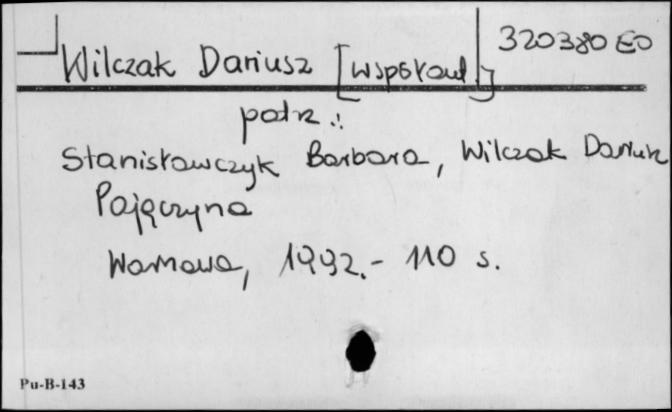 320380 EO
Wilczak Dariusz [współaut.]
patrz.:
Stanisławczyk Barbara, Wilczak Dariusz
Pajęczyna
Warszawa, 1992.- 110 s.
Pu-B-143